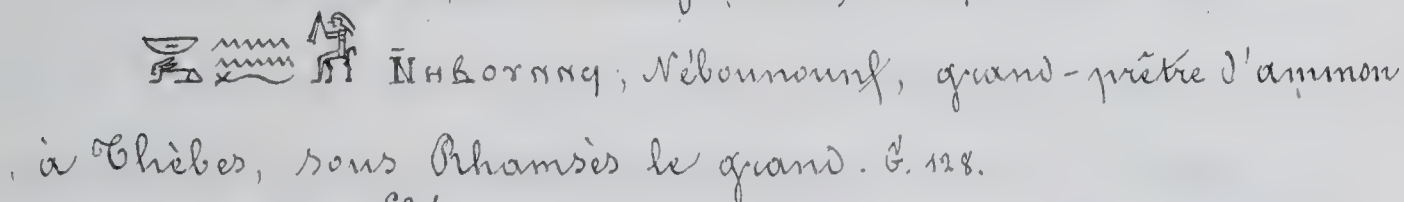 Ⲛ̄ⲏⲃⲟⲩⲛⲛϥ, Nébounounf, grand-prêtre d'ammon
à Thèbes, sous Rhamsès le grand. G. 128.